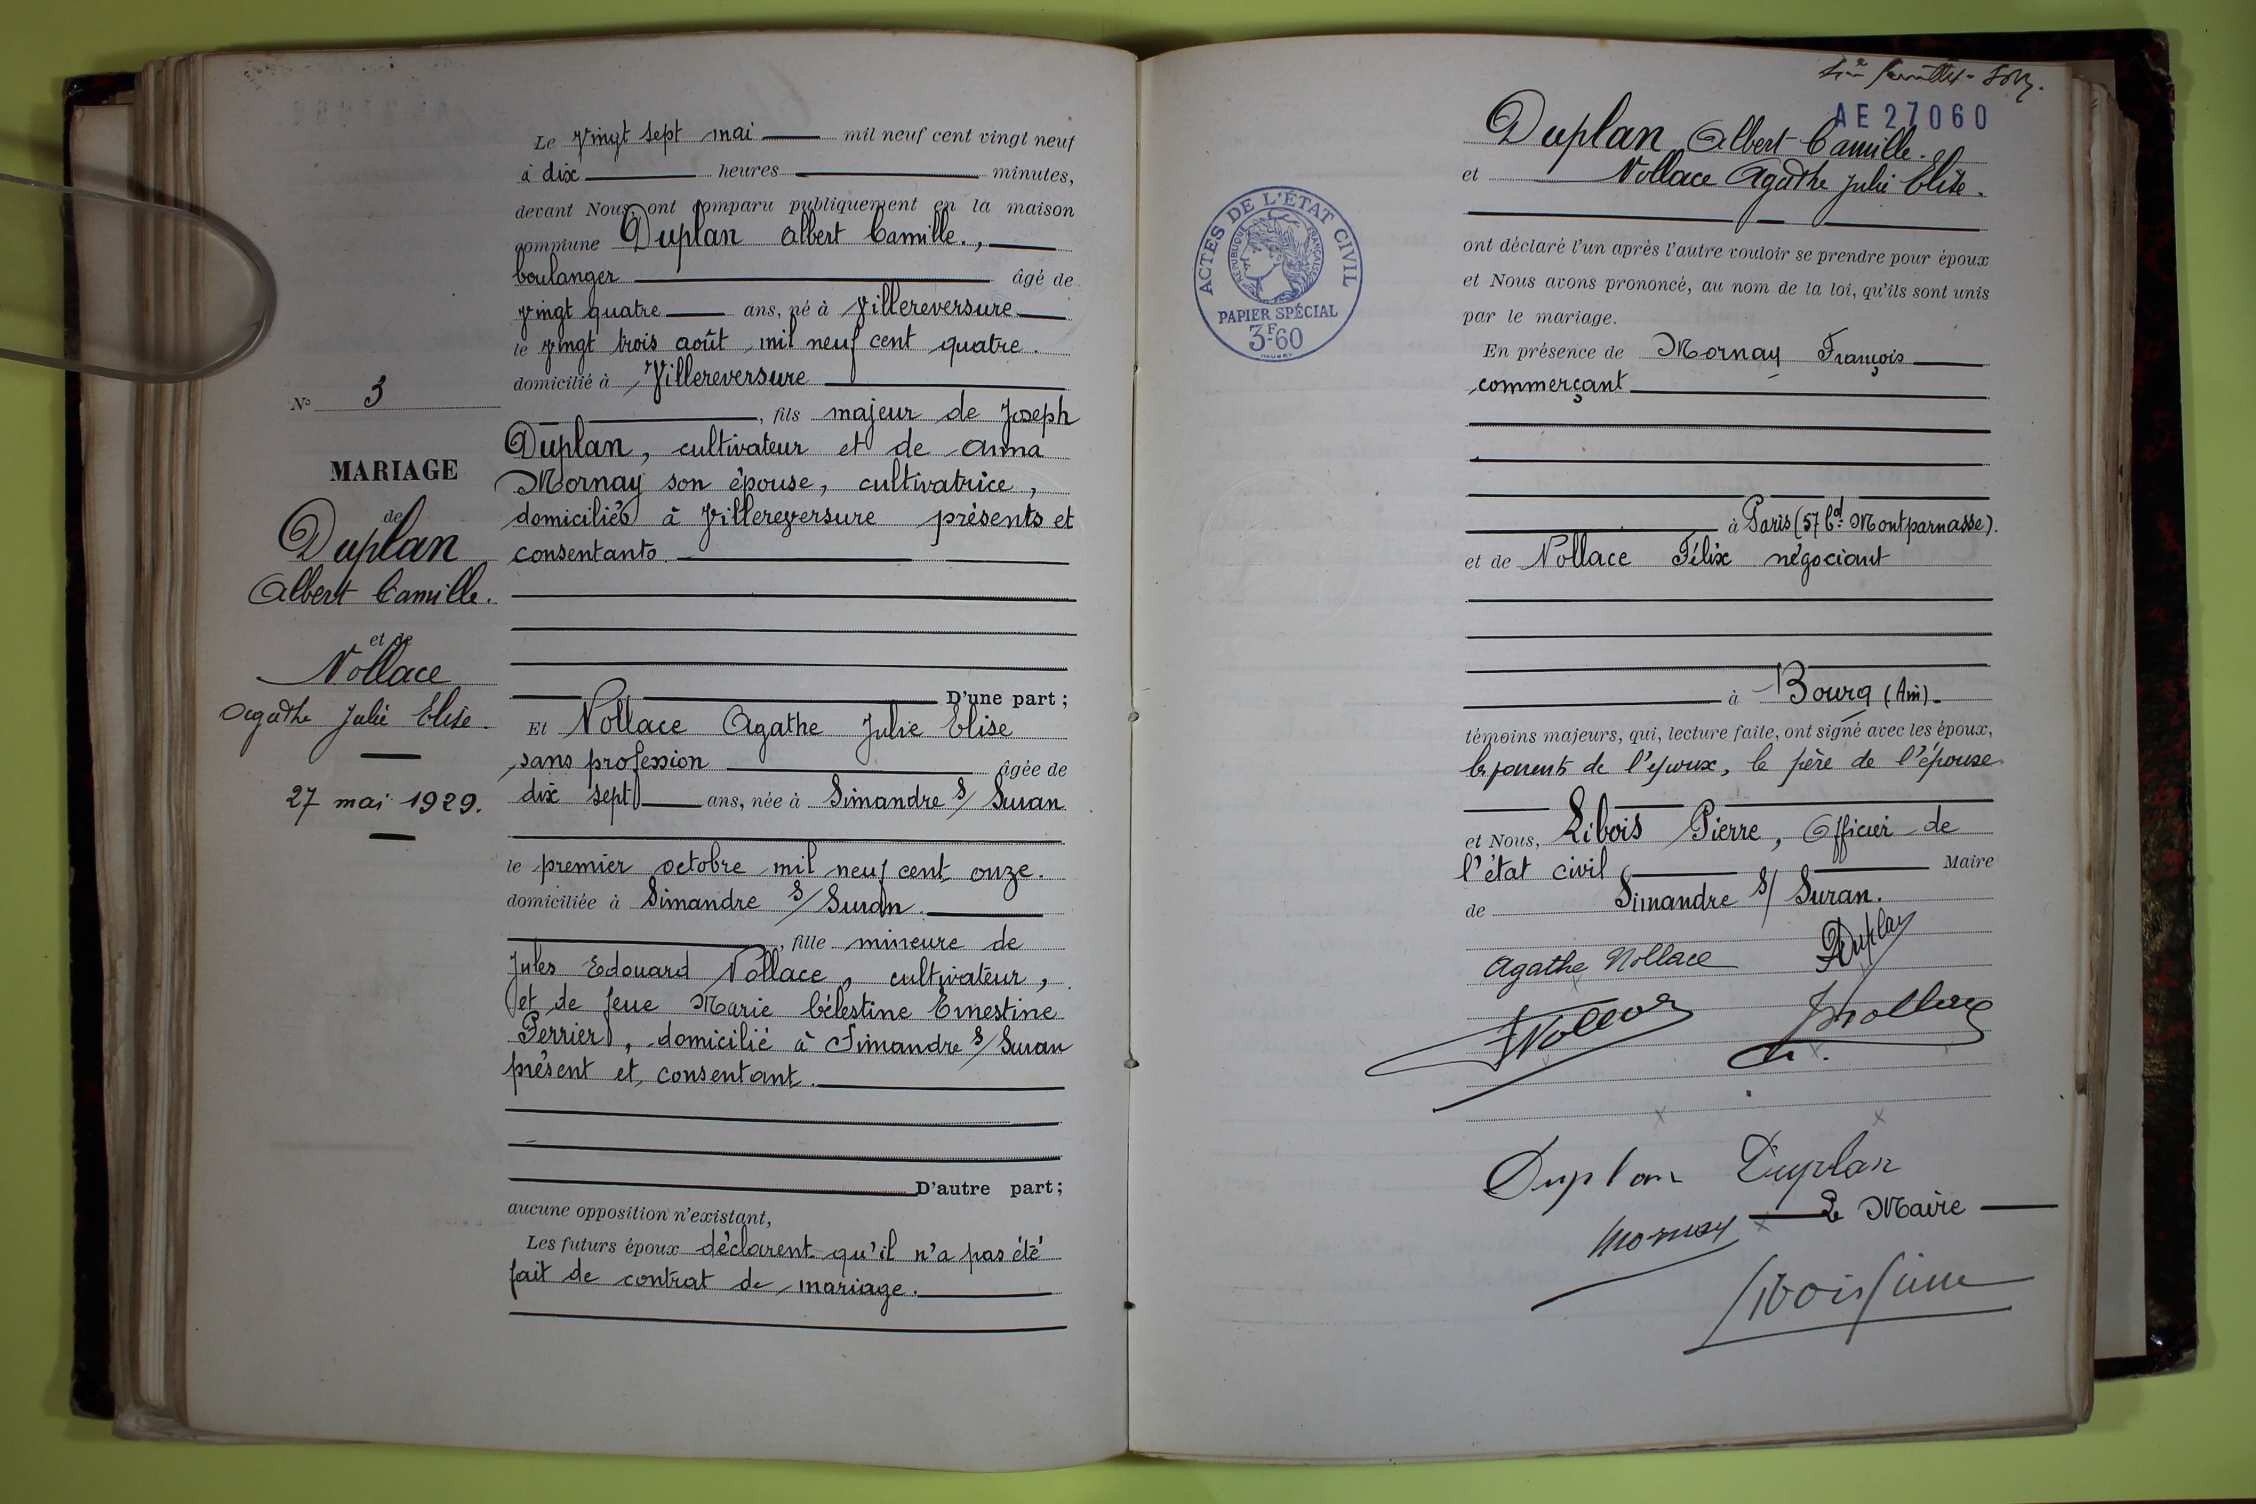 Le vingt sept mai mil neuf cent vingt neuf
à dix heures minutes,
devant Nous, ont comparu publiquement en la maison
commune Duplan Albert Camille.,
boulanger âgé de
vingt quatre ans, né à Villereversure
le vingt trois août mil neuf cent quatre.
domicilié à Villereversure
, fils majeur de Joseph
Duplan, cultivateur et de Anna
Mornay son épouse, cultivatrice,
domiciliés à Villereversure présents et
consentants.
D'une part;
Et Nollace Agathe Julie Elise
sans profession âgée de
dix sept ans, née à Simandre s/ Suran
le premier octobre mil neuf cent onze.
domiciliée à Simandre s/ Suran.
, fille mineure de
Jules Edouard Nollace, cultivateur,
et de feue Marie Célestine Ernestine
Perrier, domicilié à Simandre s/ Suran
présent et consentant.
D'autre part;
aucune opposition n'existant,
Les futurs époux déclarent qu'il n'a pas été
fait de contrat de mariage.
N° 3
MARIAGE
de
Duplan
Albert Camille.
et de
Nollace
Agathe Julie Elise.
27 mai 1929.
AE 27060
Duplan Albert Camille.
et Nollace Agathe Julie Elise.
ACTES DE L'ÉTAT CIVIL
RÉPUBLIQUE FRANÇAISE
PAPIER SPÉCIAL
3F.60
ont déclaré l'un après l'autre vouloir se prendre pour époux
et Nous avons prononcé, au nom de la loi, qu'ils sont unis
par le mariage.
En présence de Mornay François
commerçant
à Paris (57 bd. Montparnasse).
et de Nollace Félix négociant
à Bourg (Ain).
témoins majeurs, qui, lecture faite, ont signé avec les époux,
les parents de l'époux, le père de l'épouse
et Nous, Libois Pierre, Officier de
l'état civil Maire
de Simandre s/ Suran.
Agathe Nollace Duplan
Nollace
Duplan Duplan
Mornay Le Maire
Libois Pierre